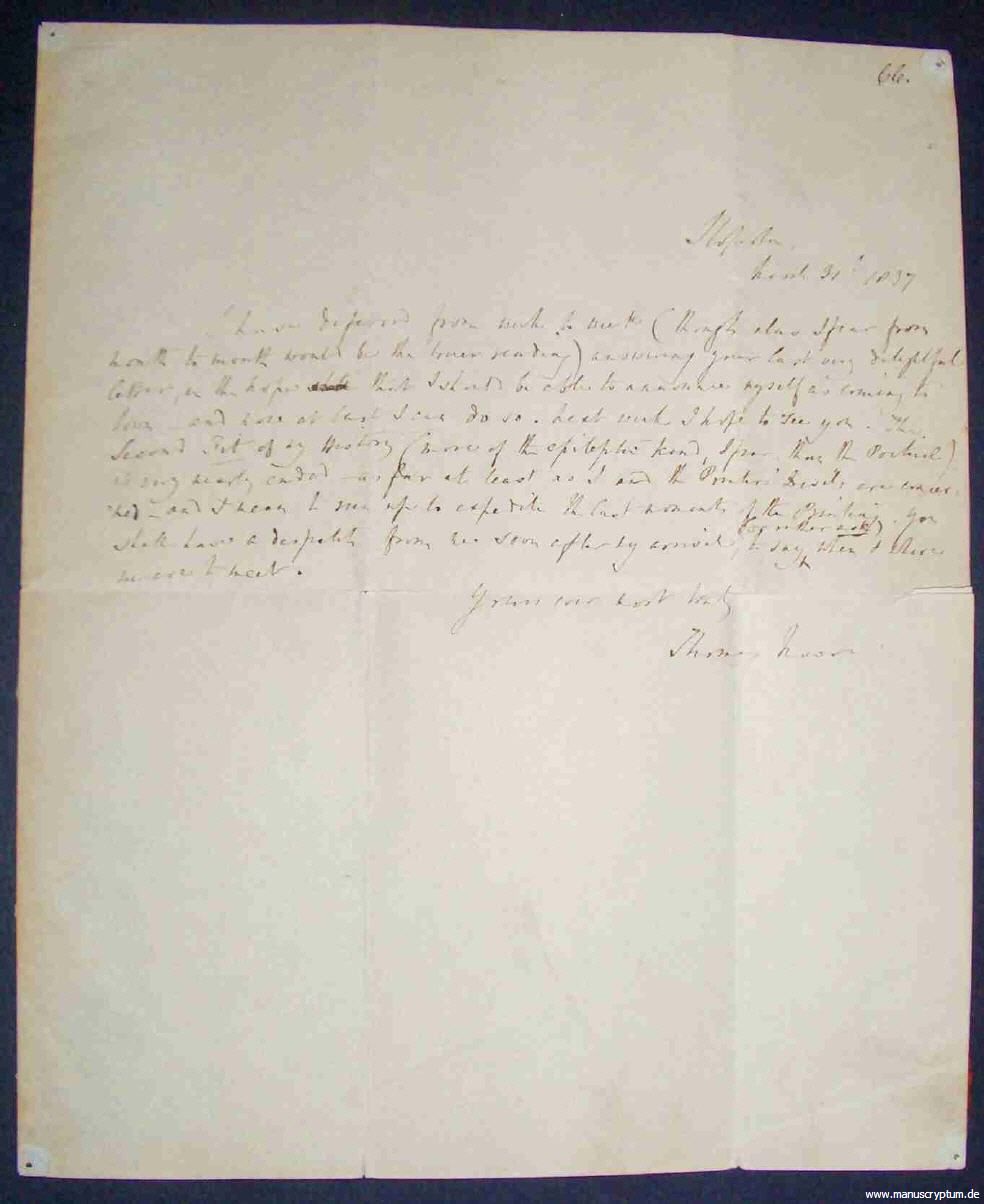 66.
Sloperton
March 31st 1837
I have deferred from week to week (though alas I fear from
month to month would be the truer reading) answering your last very delightful
letter, in the hope that I should be able to announce myself as coming to
town and now at last I can do so. Next week I hope to see you. The
Second Fit of my History (more of the epileptic kind, I fear, than the Poetical)
is very nearly ended – as far at least as I and the Printer's Devils are concer-
ned – and I mean to run up to expedite the last moments of the Printing. You
(or rather ask)
shall have a despatch from me soon after my arrival, to say when & where
we are to meet.
Yours ever most truly
Thomas Moore
www.manuscryptum.de